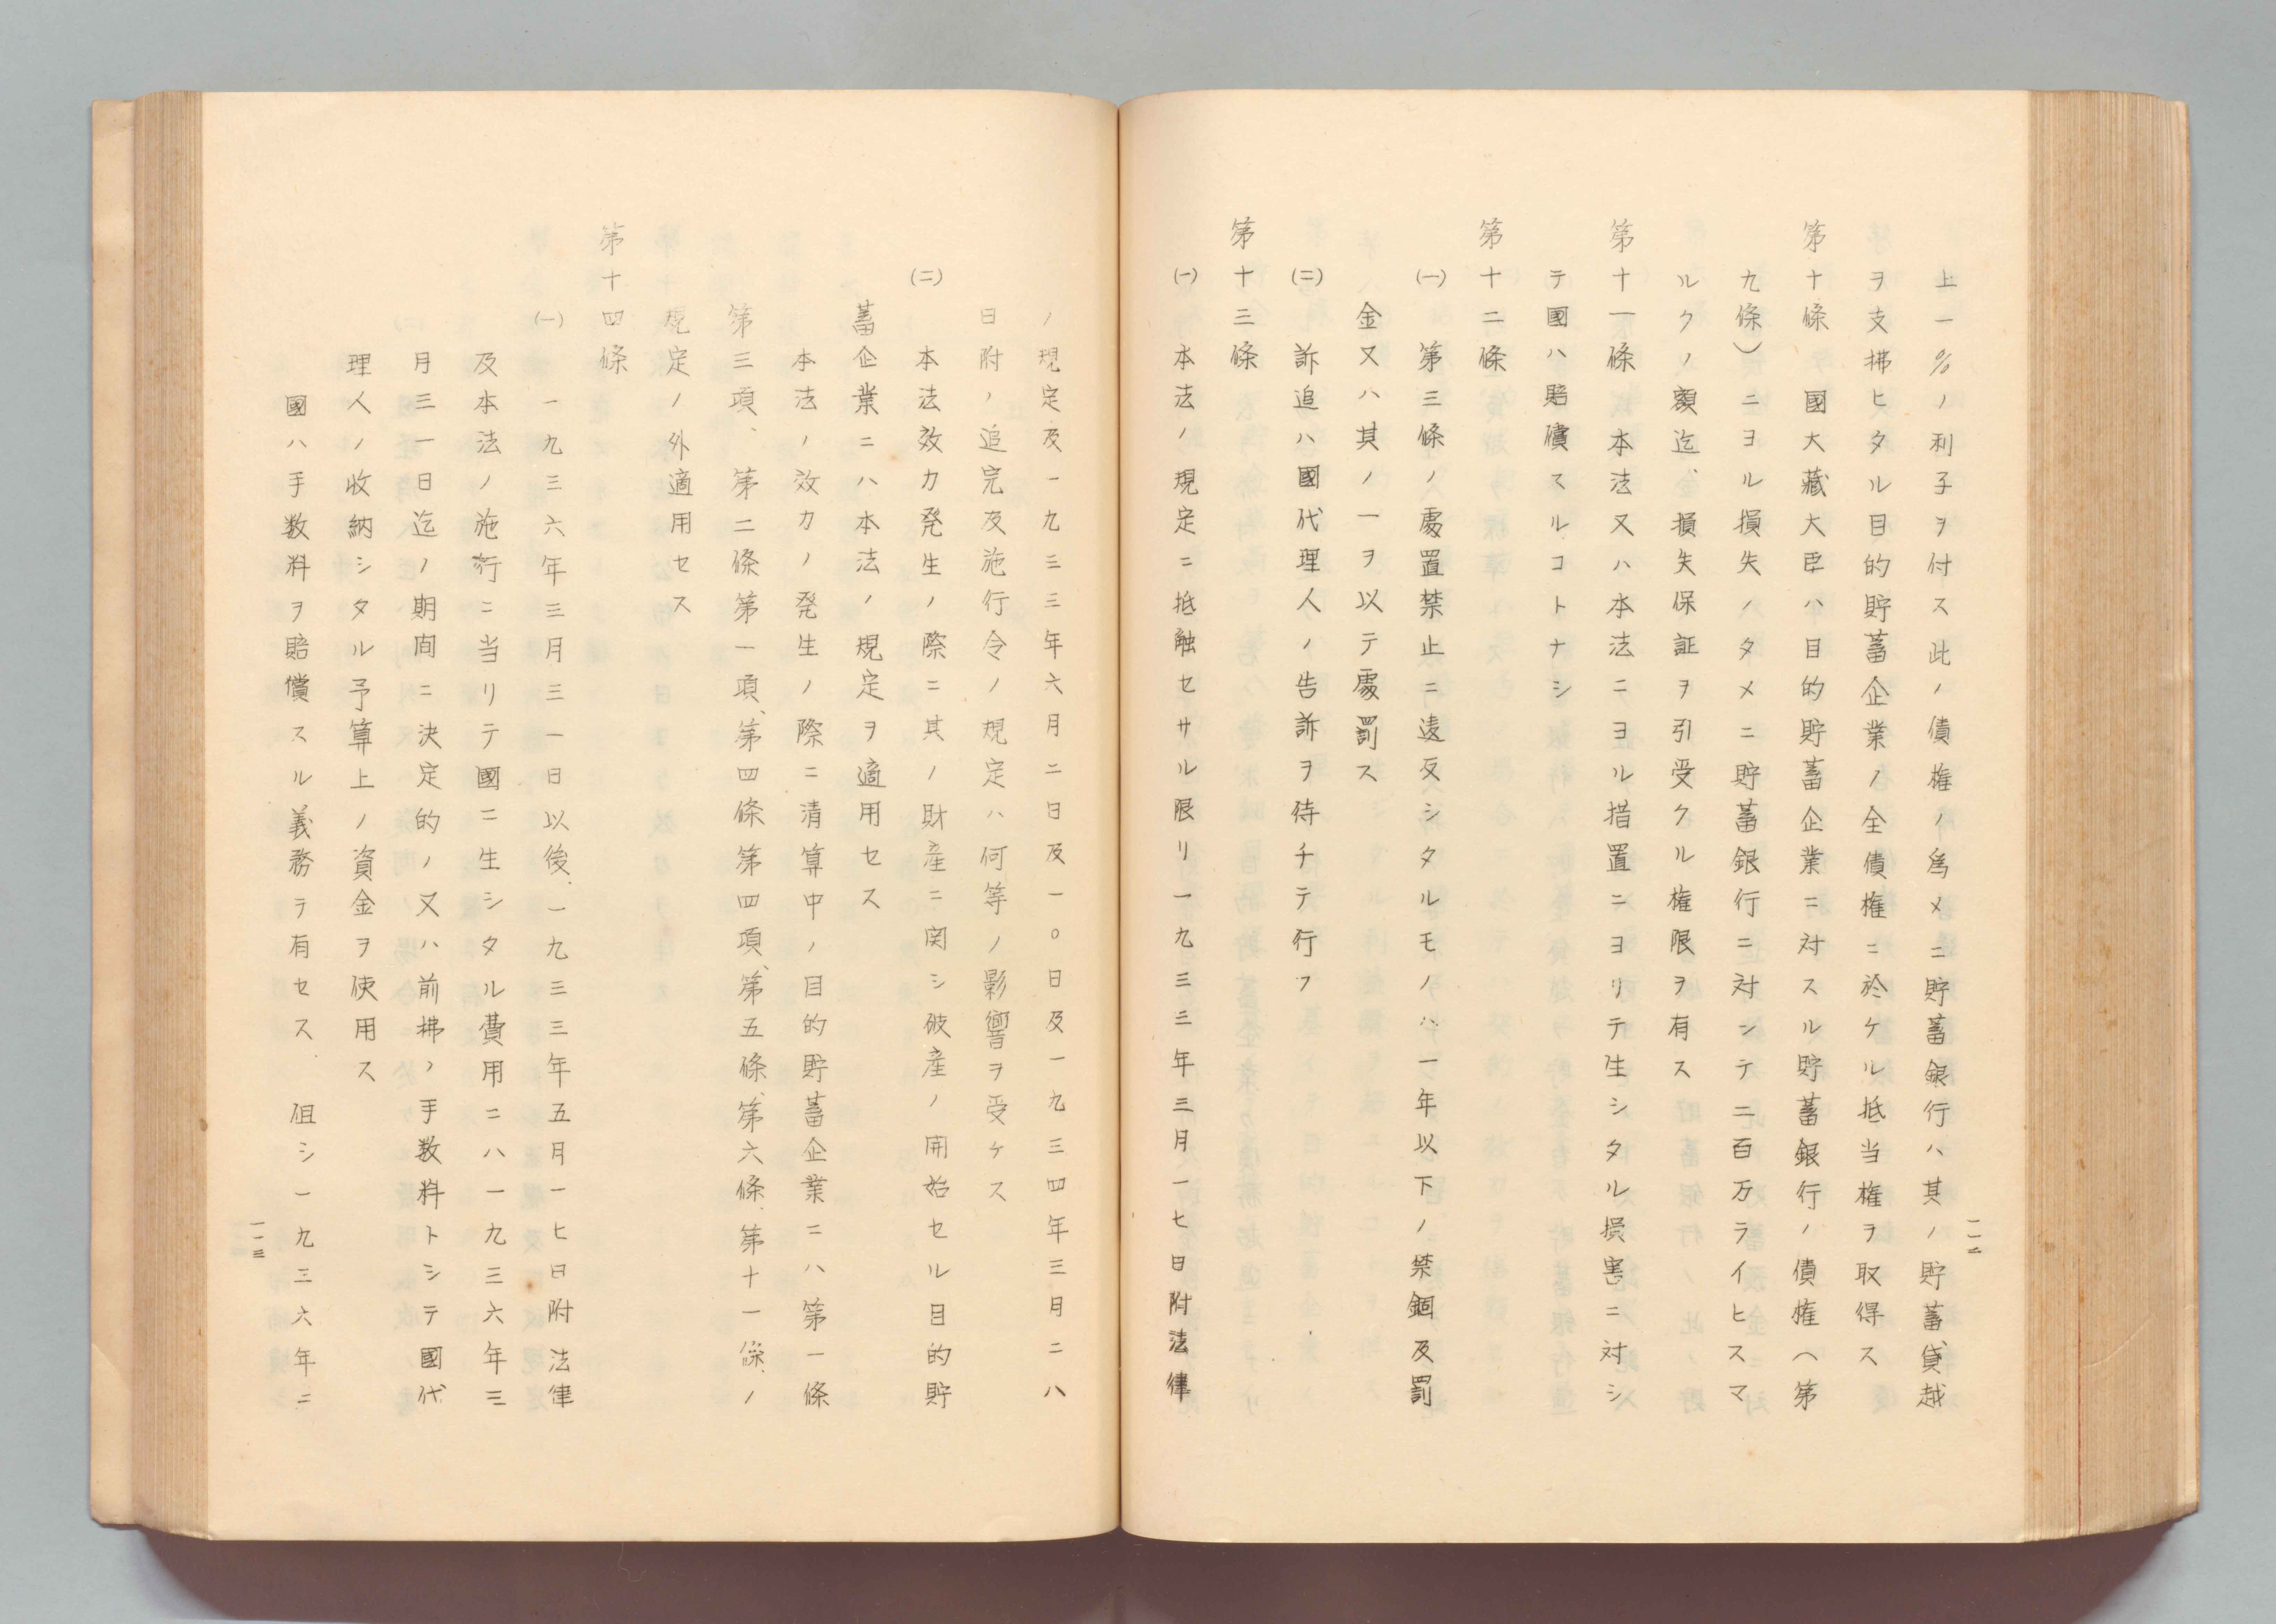 上一%ノ利子ヲ付ス此ノ債権ノ為メニ貯蓄銀行ハ其ノ貯蓄貸越
ヲ支拂ヒタル目的貯蓄企業ノ全債権ニ於ケル抵当権ヲ取得ス
第十條　國大藏大臣ハ目的貯蓄企業ニ対スル貯蓄銀行ノ債権（第
九條）ニヨル損失ノタメニ貯蓄銀行ニ対シテ二百万ライヒスマ
ルクノ額迄、損失保証ヲ引受クル権限ヲ有ス
第十一條　本法又ハ本法ニヨル措置ニヨリテ生シタル損害ニ対シ
テ國ハ賠償スルコトナシ
第十二條
㈠　第三條ノ處置禁止ニ違反シタルモノハ一年以下ノ禁錮及罰
金又ハ其ノ一ヲ以テ處罰ス
㈡　訴追ハ國代理人ノ告訴ヲ待チテ行フ
第十三條
㈠　本法ノ規定ニ抵触セサル限リ一九三三年三月一七日附法律
一一二
ノ規定及一九三三年六月二日及一〇日及一九三四年三月二八
日附ノ追完及施行令ノ規定ハ何等ノ影響ヲ受ケス
㈡　本法效力発生ノ際ニ其ノ財産ニ関シ破産ノ開始セル目的貯
蓄企業ニハ本法ノ規定ヲ適用セス
本法ノ效力ノ発生ノ際ニ清算中ノ目的貯蓄企業ニハ第一條
第三項、第二條第一項、第四條第四項、第五條、第六條、第十一條、ノ
規定ノ外適用セス
第十四條
㈠　一九三六年三月三一日以後、一九三三年五月一七日附法律
及本法ノ施行ニ当リテ國ニ生シタル費用ニハ一九三六年三
月三一日迄ノ期間ニ決定的ノ又ハ前拂ノ手数料トシテ國代
理人ノ收納シタル予算上ノ資金ヲ使用ス
國ハ手数料ヲ賠償スル義務ラ有セス　但シ一九三六年ニ
一一三